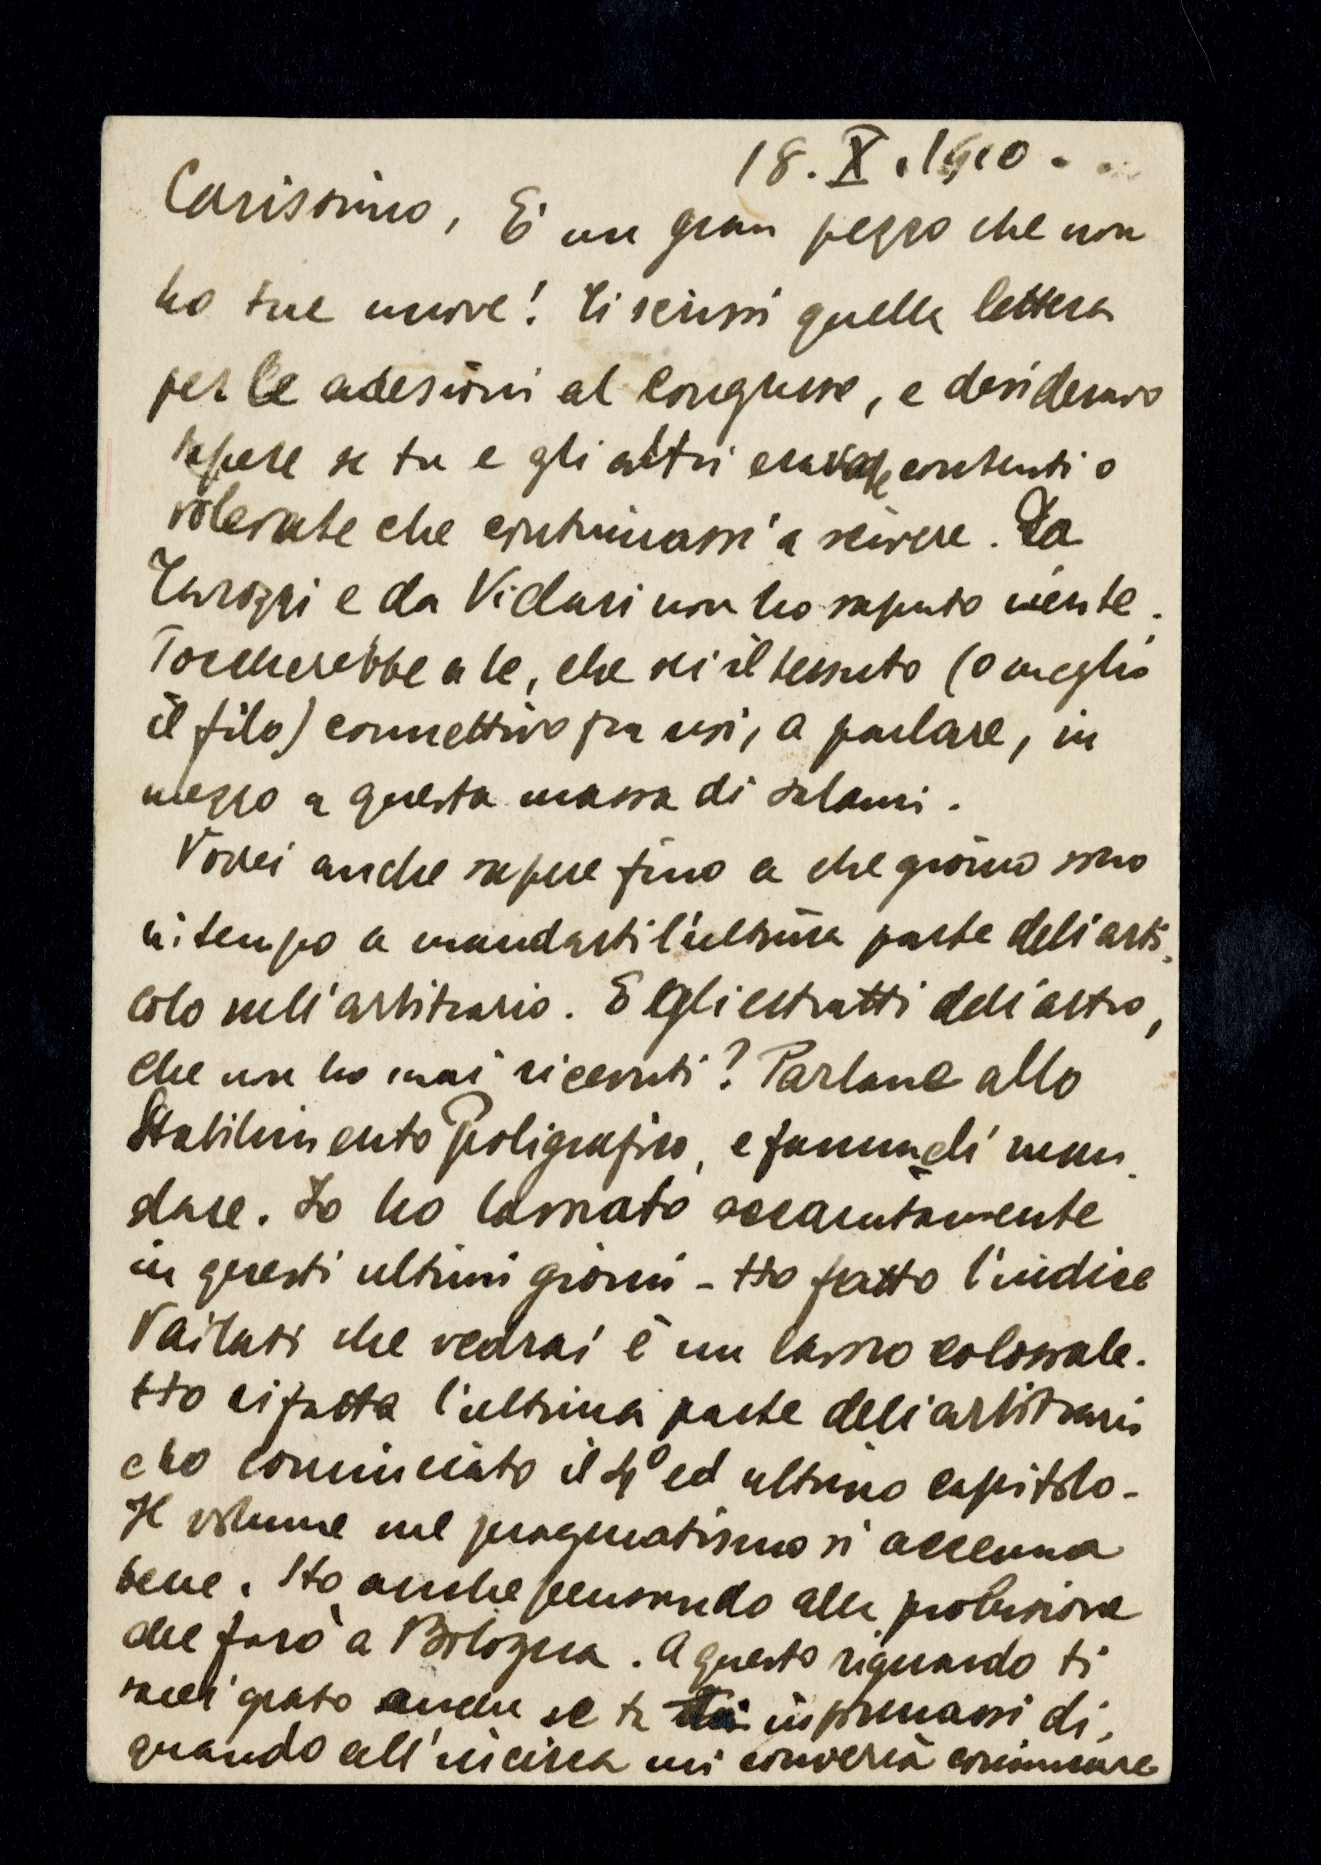 18.X.1910.
Carissimo, È un gran pezzo che non
ho tue nuove! Ti scrissi quella lettera
per le adesioni al Congresso, e desideravo
sapere se tu e gli altri eravate contenti o
volevate che continuassi a scrivere. Da
Tarozzi e da Vidari non ho saputo niente.
Toccherebbe a te, che sei il tessuto (o meglio
il filo) connettivo fra noi, a parlare, in
mezzo a questa massa di salami.
Vorrei anche sapere fino a che giorno sono
in tempo a mandarti l'ultima parte dell'arti-
colo sull'arbitrario. E gli estratti dell'altro,
che non ho mai ricevuti? Parlane allo
Stabilimento Poligrafico, e fammeli man-
dare. Io ho lavorato accanitamente
in questi ultimi giorni - Ho fatto l'indice
Vailati che vedrai è un lavoro colossale.
Ho rifatta l'ultima parte dell'arbitrario
e ho cominciato il 4° ed ultimo capitolo -
Il volume sul pragmatismo si accenna
bene. Sto anche pensando alla prolusione
che farò a Bologna. A questo riguardo ti
sarei grato anche se tu informassi di,
quando all'incirca mi converrà cominciare